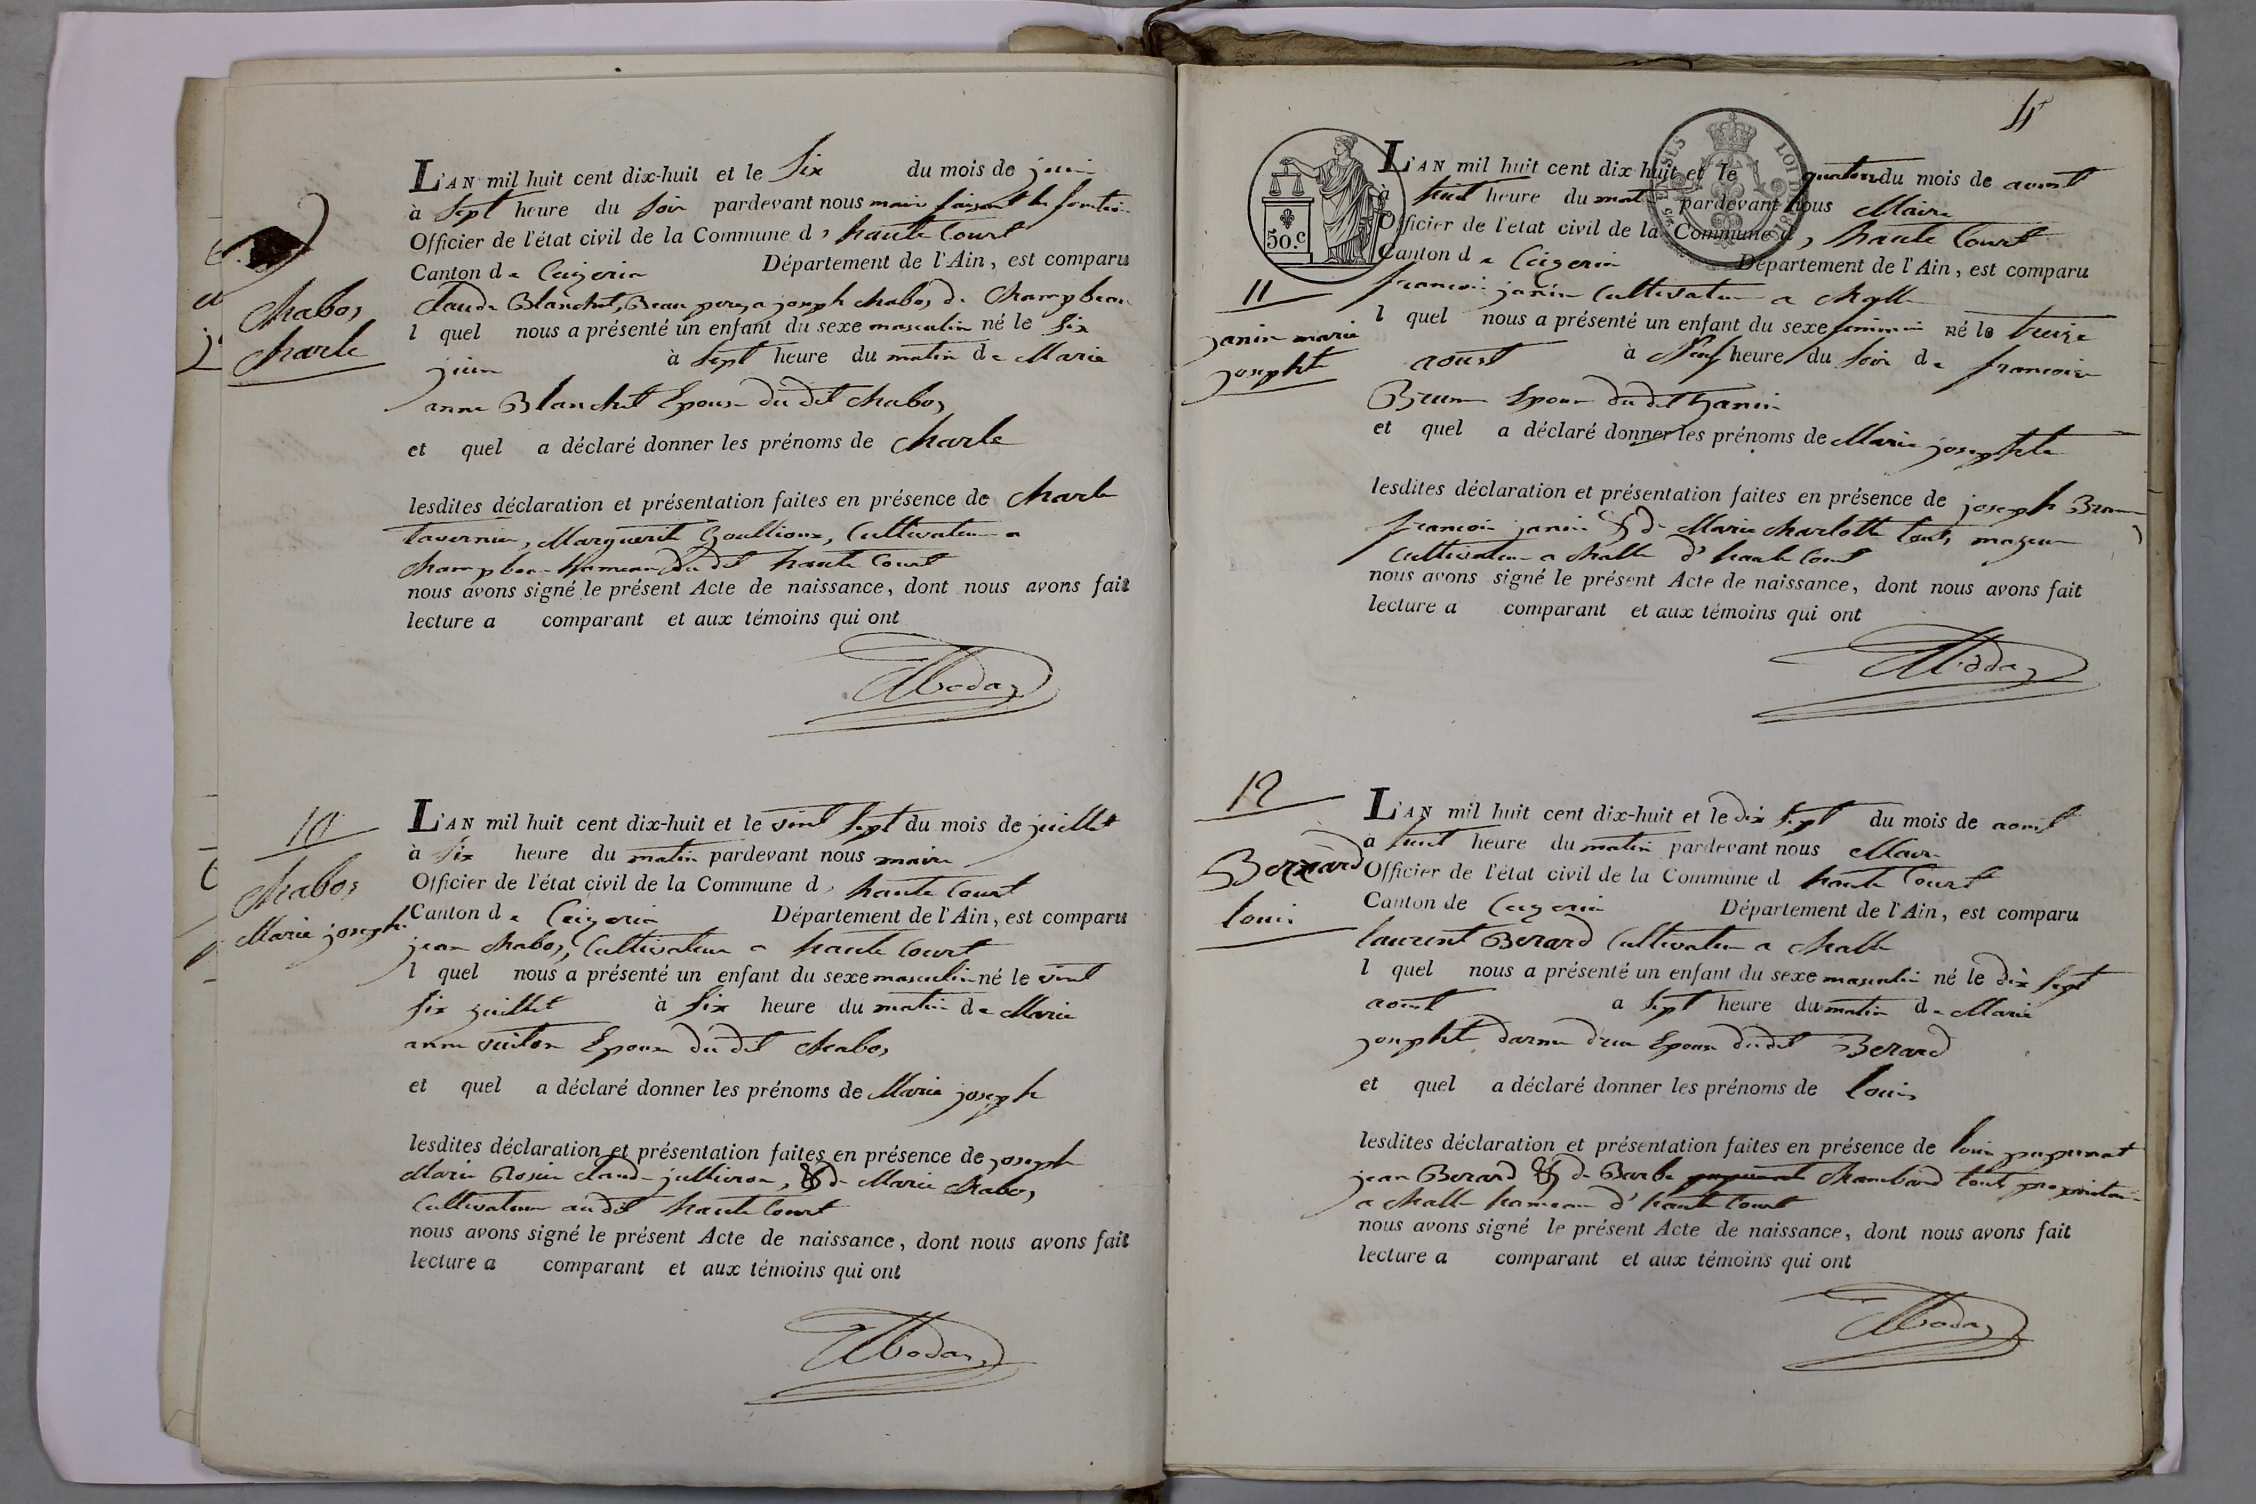 L'AN mil huit cent dix-huit et le Six du mois de juin
à Sept heure du soir pardevant nous maire faisant les fonction
Officier de l'état civil de la Commune d haute Court
Canton de Ceizeria Département de l'Ain, est comparu
Claude Blanchet, Beau pere a joseph Chabos de
Chabos
Charle
l quel nous a présenté un enfant du sexe masculin né le six
juin à Sept heure du matin de Marie
anne Blanchet Epouse du dit Chabos
et quel a déclaré donner les prénoms de Charle
lesdites déclaration et présentation faites en présence de Charle
tavernier, Marguerit Cultivateur a
hameau du dit haute Court
nous avons signé le présent Acte de naissance, dont nous avons fait
lecture a comparant et aux témoins qui ont
10
Chabos
Marie joseph
L'AN mil huit cent dix-huit et le vint Sept du mois de juillet
à Six heure du matin pardevant nous maire
Officier de l'état civil de la Commune d haute Court
Canton de Ceizeria Département de l'Ain, est comparu
jean Chabos, Cultivateur a haute Court
l quel nous a présenté un enfant du sexe masculin né le vint
six juillet à Six heure du matin de Marie
anne Epouse du dit Chabos
et quel a déclaré donner les prénoms de Marie joseph
lesdites déclaration et présentation faites en présence de joseph
Marie Rosier Claude & de Marie Chabos
Cultivateur au dit haute Court
nous avons signé le présent Acte de naissance, dont nous avons fait
lecture a comparant et aux témoins qui ont
50.c
LOI DE 1816
11
janin marie
josephte
L'AN mil huit cent dix-huit et le quatorze du mois de aoust
à huit heure du mat pardevant nous Maire
Officier de l'état civil de la Commune d haute Court
Canton de Ceizeria Département de l'Ain, est comparu
francois janin Cultivateur a Challe
l quel nous a présenté un enfant du sexe feminin né le treize
aoust à Neuf heure du soir de francoise
Brun Epouse du dit janin
et quel a déclaré donner les prénoms de Marie josephte
lesdites déclaration et présentation faites en présence de joseph Brun
francois janin & de Marie Charlotte tous majeur
Cultivateur a Challe d' haute Court
nous avons signé le présent Acte de naissance, dont nous avons fait
lecture a comparant et aux témoins qui ont
12
Berard
loui
L'AN mil huit cent dix-huit et le dix sept du mois de aoust
à huit heure du matin pardevant nous Maire
Officier de l'état civil de la Commune d haute Court
Canton de Ceizeria Département de l'Ain, est comparu
laurent Berard Cultivateur a Challe
l quel nous a présenté un enfant du sexe masculin né le dix sept
aoust a sept heure du matin de Marie
josephte Epouse du dit Berard
et quel a déclaré donner les prénoms de louis
lesdites déclaration et présentation faites en présence de louis
jean Berard & de Barbe Chambard tous
a Challe hameau d' haute Court
nous avons signé le présent Acte de naissance, dont nous avons fait
lecture a comparant et aux témoins qui ont